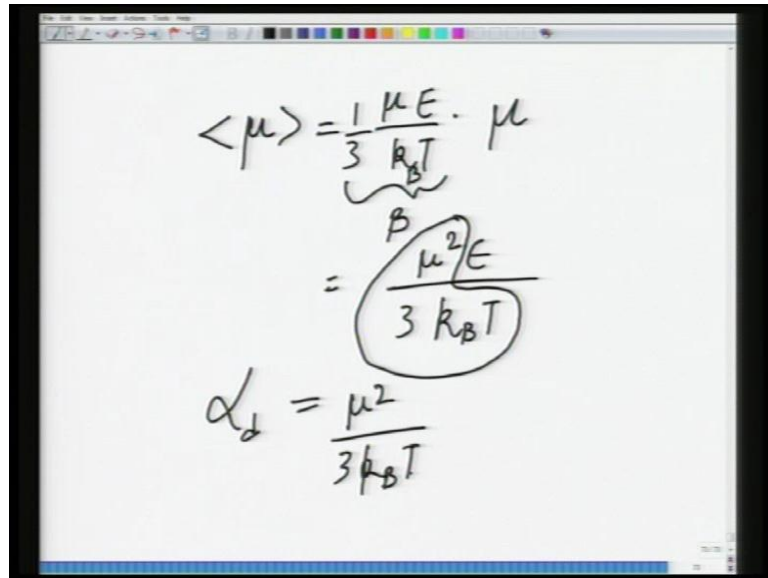 File Edit View Insert Actions Tools Help
<μ> = 1/3 μE/k_BT · μ
β
= μ²E/3 k_BT
α_d = μ²/3k_BT